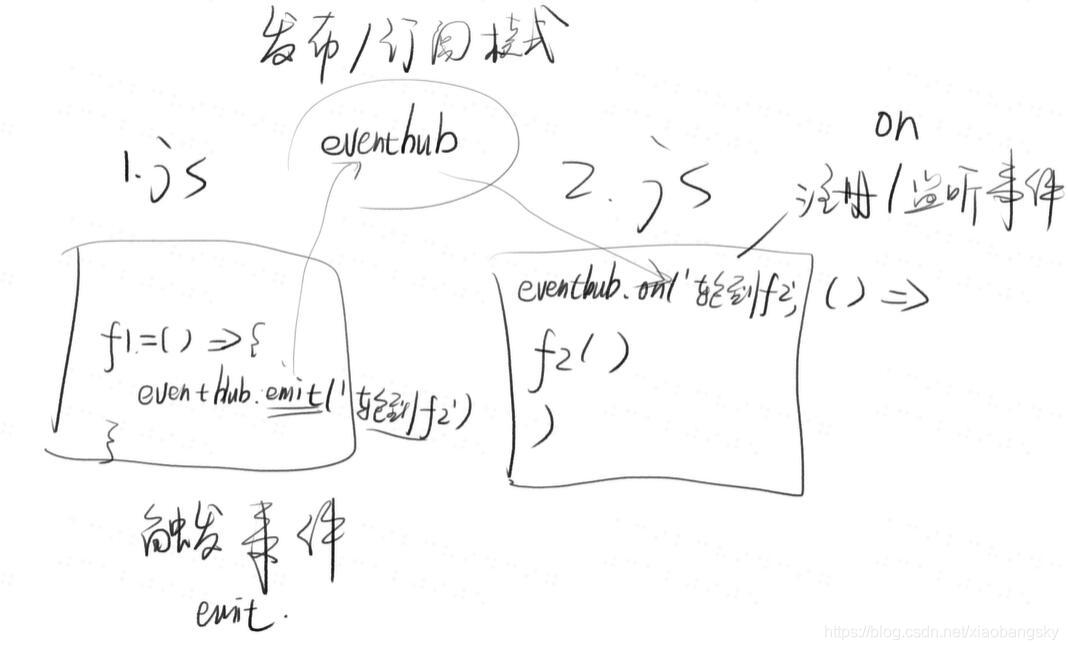 发布/订阅模式
eventhub
1.js
2.js
on
注册/监听事件
f1=() => {
eventhub.emit('轮到f2')
}
eventhub.on('轮到f2', () =>
f2()
)
触发事件
emit.
https://blog.csdn.net/xiaobangsky